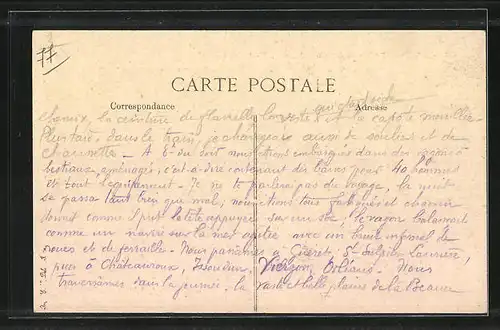 CARTE POSTALE
Correspondance
Adresse
qui
la ceinture de flanelle la veste et la capote mouillées
Plus tard, dans le train, je changeai aussi de souliers et de
chaussettes - A 8h du soir nous étions embarqués dans des wagons à
bestiaux, aménagés, c'est-à-dire contenant des bancs pour 40 hommes
et tout l'équipement - Je ne te parlerai pas du voyage, la nuit
se passa tant bien que mal, nous étions tous fatigués et chacun
dormait comme il put la tête appuyée sur un sac, le wagon balançait
comme un navire sur la mer agitée avec un bruit infernal de
roues et de ferraille - Nous passâmes à Guéret, St Sulpice Laurière,
puis à Châteauroux, Issoudun, Vierzon, Orléans - Nous
traversâmes dans la journée la vaste et belle plaine de la Beauce